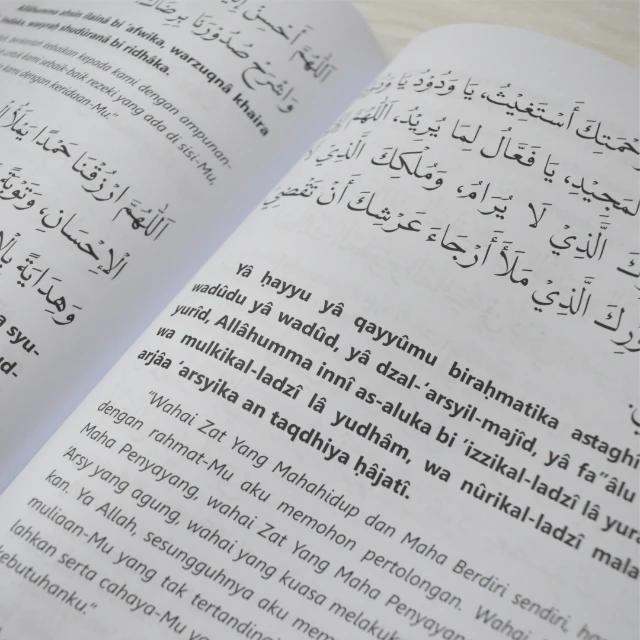 اَللّٰهُمَّ أَحْسِنْ
وَاشْرَحْ صُدُوْرَنَا بِرِضَاكَ
warzuqnâ khaira
bi ridhâka.
kepada kami dengan ampunan-
rezeki yang ada di sisi-Mu,
dengan keridaan-Mu."
اَللّٰهُمَّ ارْزُقْنَا حَمْدًا يَمْلَأُ
الْاِحْسَانِ، وَتَوْبَةً
وَهِدَايَةً
a syu-
d-
أَسْتَغِيْثُ، يَا وَدُوْدُ يَا
الْمَجِيْدِ، يَا فَعَّالُ لِمَا يُرِيْدُ، اَللّٰهُمَّ
الَّذِيْ لَا يُرَامُ، وَمُلْكِكَ الَّذِيْ
الَّذِيْ مَلَأَ أَرْجَاءَ عَرْشِكَ أَنْ تَقْضِيَ
yâ ḥayyu yâ qayyûmu biraḥmatika astaghî
wadûdu yâ wadûd, yâ dzal-‘arsyil-majîd, yâ fa‘‘âlu
yurîd, Allâhumma innî as-aluka bi ‘izzikal-ladzî lâ yura
wa mulkikal-ladzî lâ yudhâm, wa nûrikal-ladzî mala
arjâa ‘arsyika an taqdhiya ḥâjatî.
"Wahai Zat Yang Mahahidup dan Maha Berdiri sendiri, h
dengan rahmat-Mu aku memohon pertolongan. Wahai
Maha Penyayang, wahai Zat Yang Maha Penyayang
Arsy yang agung, wahai yang kuasa melakuk
kan. Ya Allah, sesungguhnya aku mem
muliaan-Mu yang tak tertanding
lahkan serta cahaya-Mu ya
ebutuhanku."